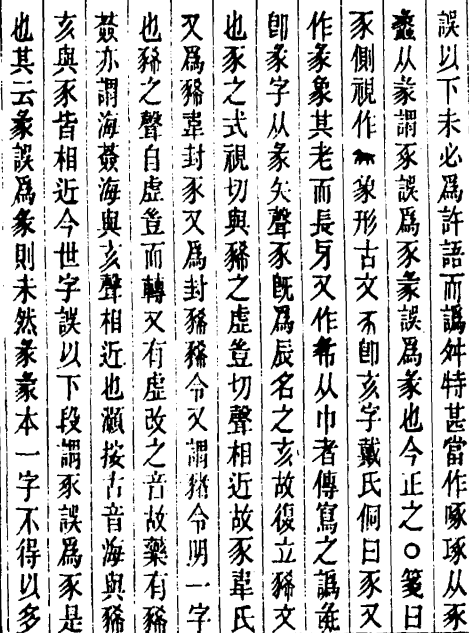 誤以下未必爲許語而譌舛特甚當作啄琢从豕
蠡从彖謂豕誤爲豕彖誤爲彖也今正之○箋曰
豕側視作象形古文卽亥字戴氏侗曰豕又
作彖象其老而長牙又作㣇从巾者傳寫之譌彘
卽彖字从彖矢聲豕旣爲辰名之亥故復立豨文
也豕之式視切與豨之虛豈切聲相近故豕韋氏
又爲豨韋封豕又爲封豨豨令又謂豬令明一字
也豨之聲自虛豈而轉又有虛改之音故藥有豨
薟亦謂海薟海與亥聲相近也灝按古音海與豨
亥與豕皆相近今世字誤以下段謂豕誤爲豕是
也其云彖誤爲彖則未然彖彖本一字不得以多